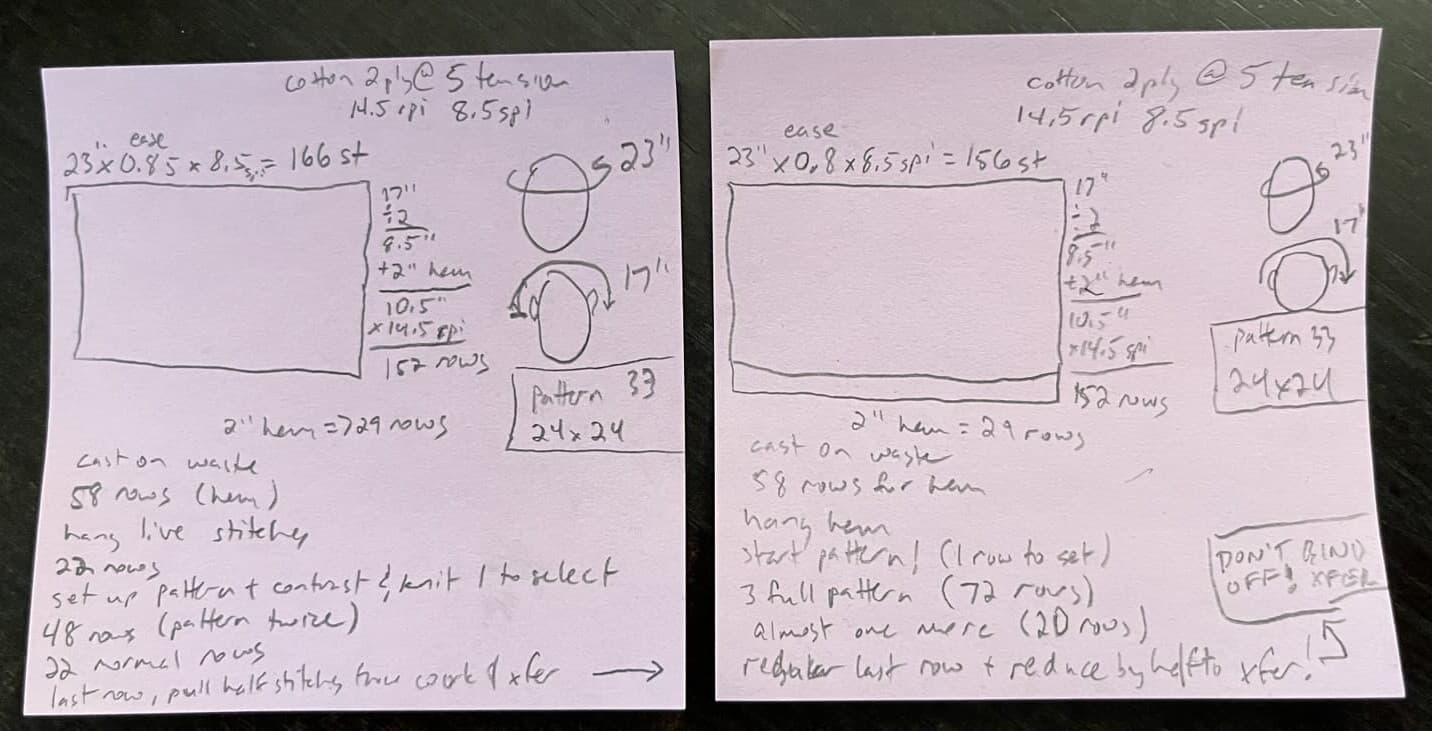 cotton 2ply @ 5 tension
14.5 rpi 8.5 spi
ease
23" x 0.85 x 8.5 spi = 166 st
23"
17"
÷2
8.5"
+2" hem
10.5"
x14.5 rpi
152 rows
17"
pattern 33
24x24
2" hem => 29 rows
cast on waste
58 rows (hem)
hang live stitches
22 rows
set up pattern + contrast & knit 1 to select
48 rows (pattern twice)
22 normal rows
last row, pull half stitches thru & xfer →
cotton 2ply @ 5 tension
14.5 rpi 8.5 spi
ease
23" x 0.8 x 8.5 spi = 156 st
23"
17"
÷2
8.5"
+2" hem
10.5"
x14.5 rpi
152 rows
17"
pattern 33
24x24
2" hem = 29 rows
cast on waste
58 rows for hem
hang hem
start pattern! (1 row to set)
3 full pattern (72 rows)
almost one more (20 rows)
regular last row + reduce by half to xfer!
DON'T BIND
OFF! XFER